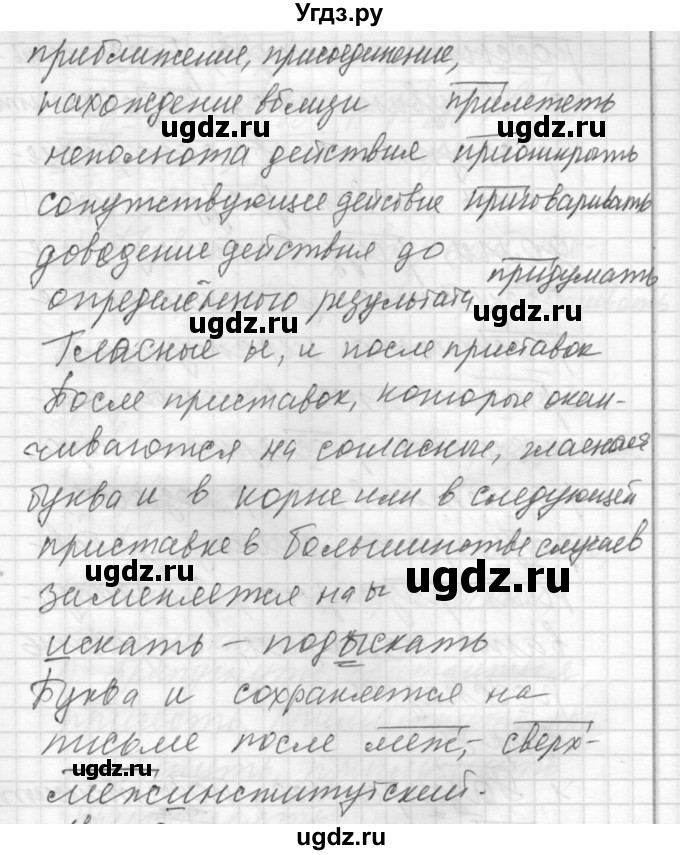 Угдз.ру
приближение, присоединение,
нахождение вблизи прилететь
ugdz.ru ugdz.ru
неполнота действия приоткрыть
сопутствующее действие приговаривать
доведение действия до
придумать
определённого результата
ugdz.ru ugdz.ru
Гласные ы, и после приставок
После приставок, которые окан-
чиваются на согласные, гласная
буква и в корне или в следующей
приставке в большинстве случаев
ugdz.ru ugdz.ru
заменяется на ы
искать – подыскать
Буква и сохраняется на
письме после меж-, сверх-
ugdz.ru
межинститутский.
ugdz.ru